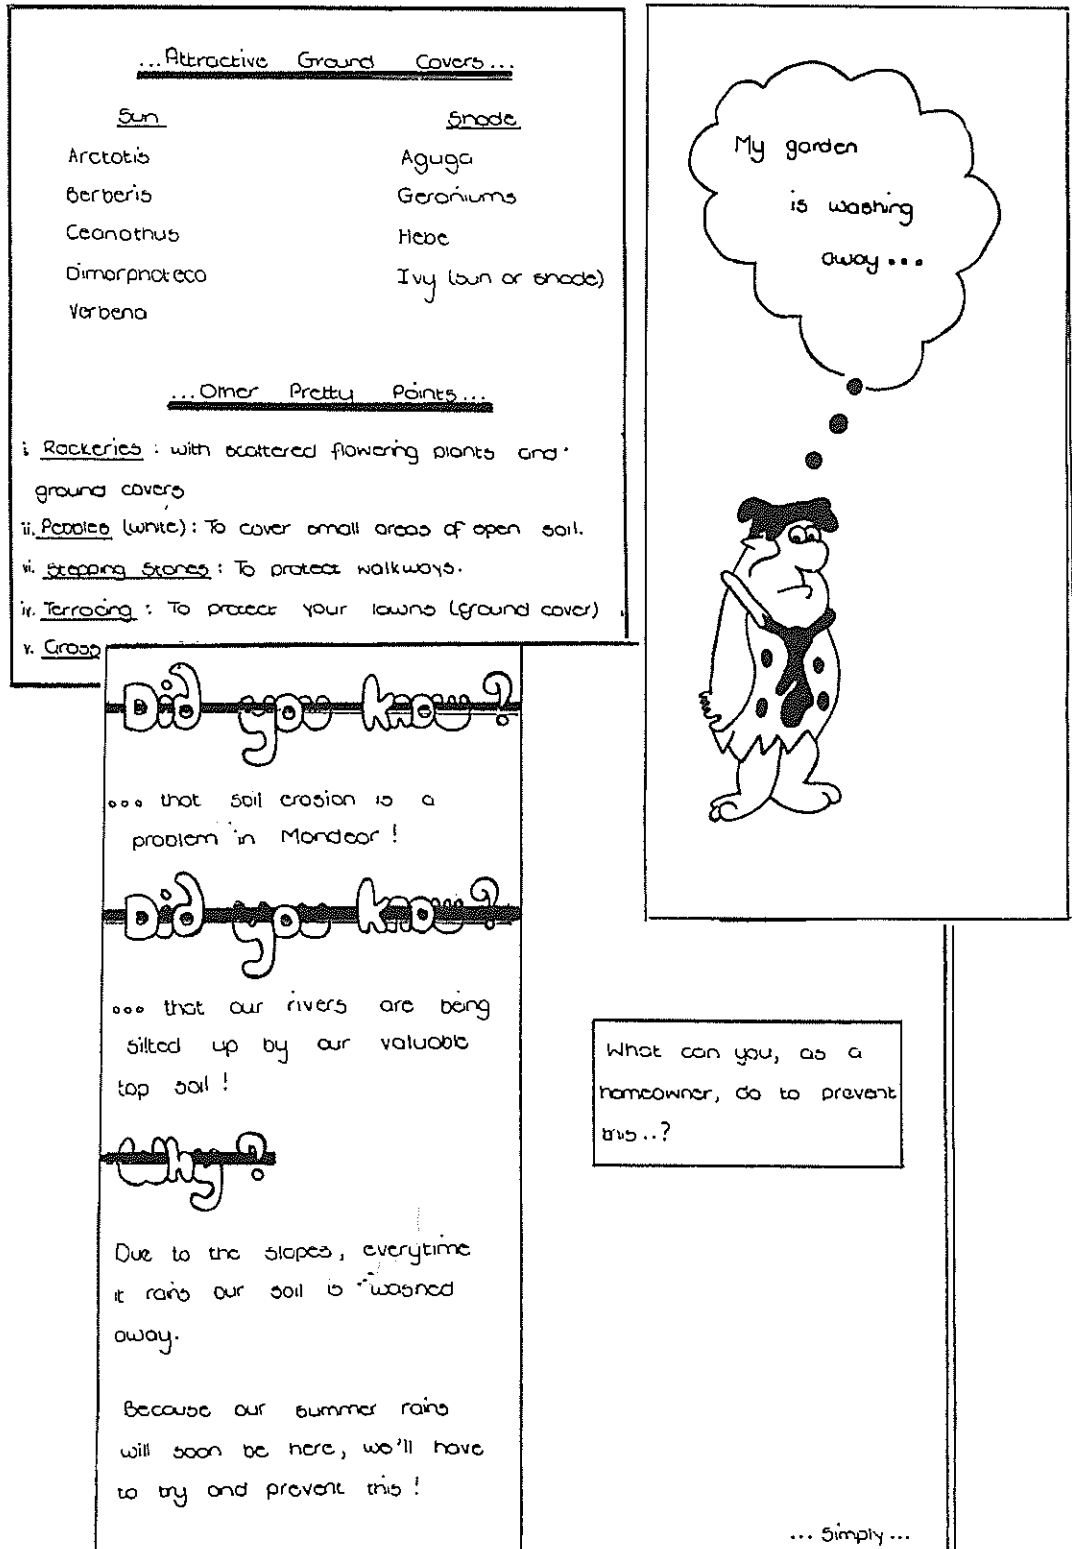 ...Attractive Ground Covers...
Sun
Arctotis
Berberis
Ceanothus
Dimorphoteca
Verbena
Shade
Aguga
Geraniums
Hebe
Ivy (sun or shade)
...Other Pretty Points...
i. Rockeries : with scattered flowering plants and
ground covers
ii. Pebbles (white) : To cover small areas of open soil.
vi. Stepping Stones : To protect walkways.
iv. Terracing : To protect your lawns (ground cover)
v. Grass
My garden
is washing
away...
Did you know?
... that soil erosion is a
problem in Mondeor!
Did you know?
... that our rivers are being
silted up by our valuable
top soil!
Why?
Due to the slopes, everytime
it rains our soil is washed
away.
Because our summer rains
will soon be here, we'll have
to try and prevent this!
What can you, as a
homeowner, do to prevent
this..?
... Simply ...